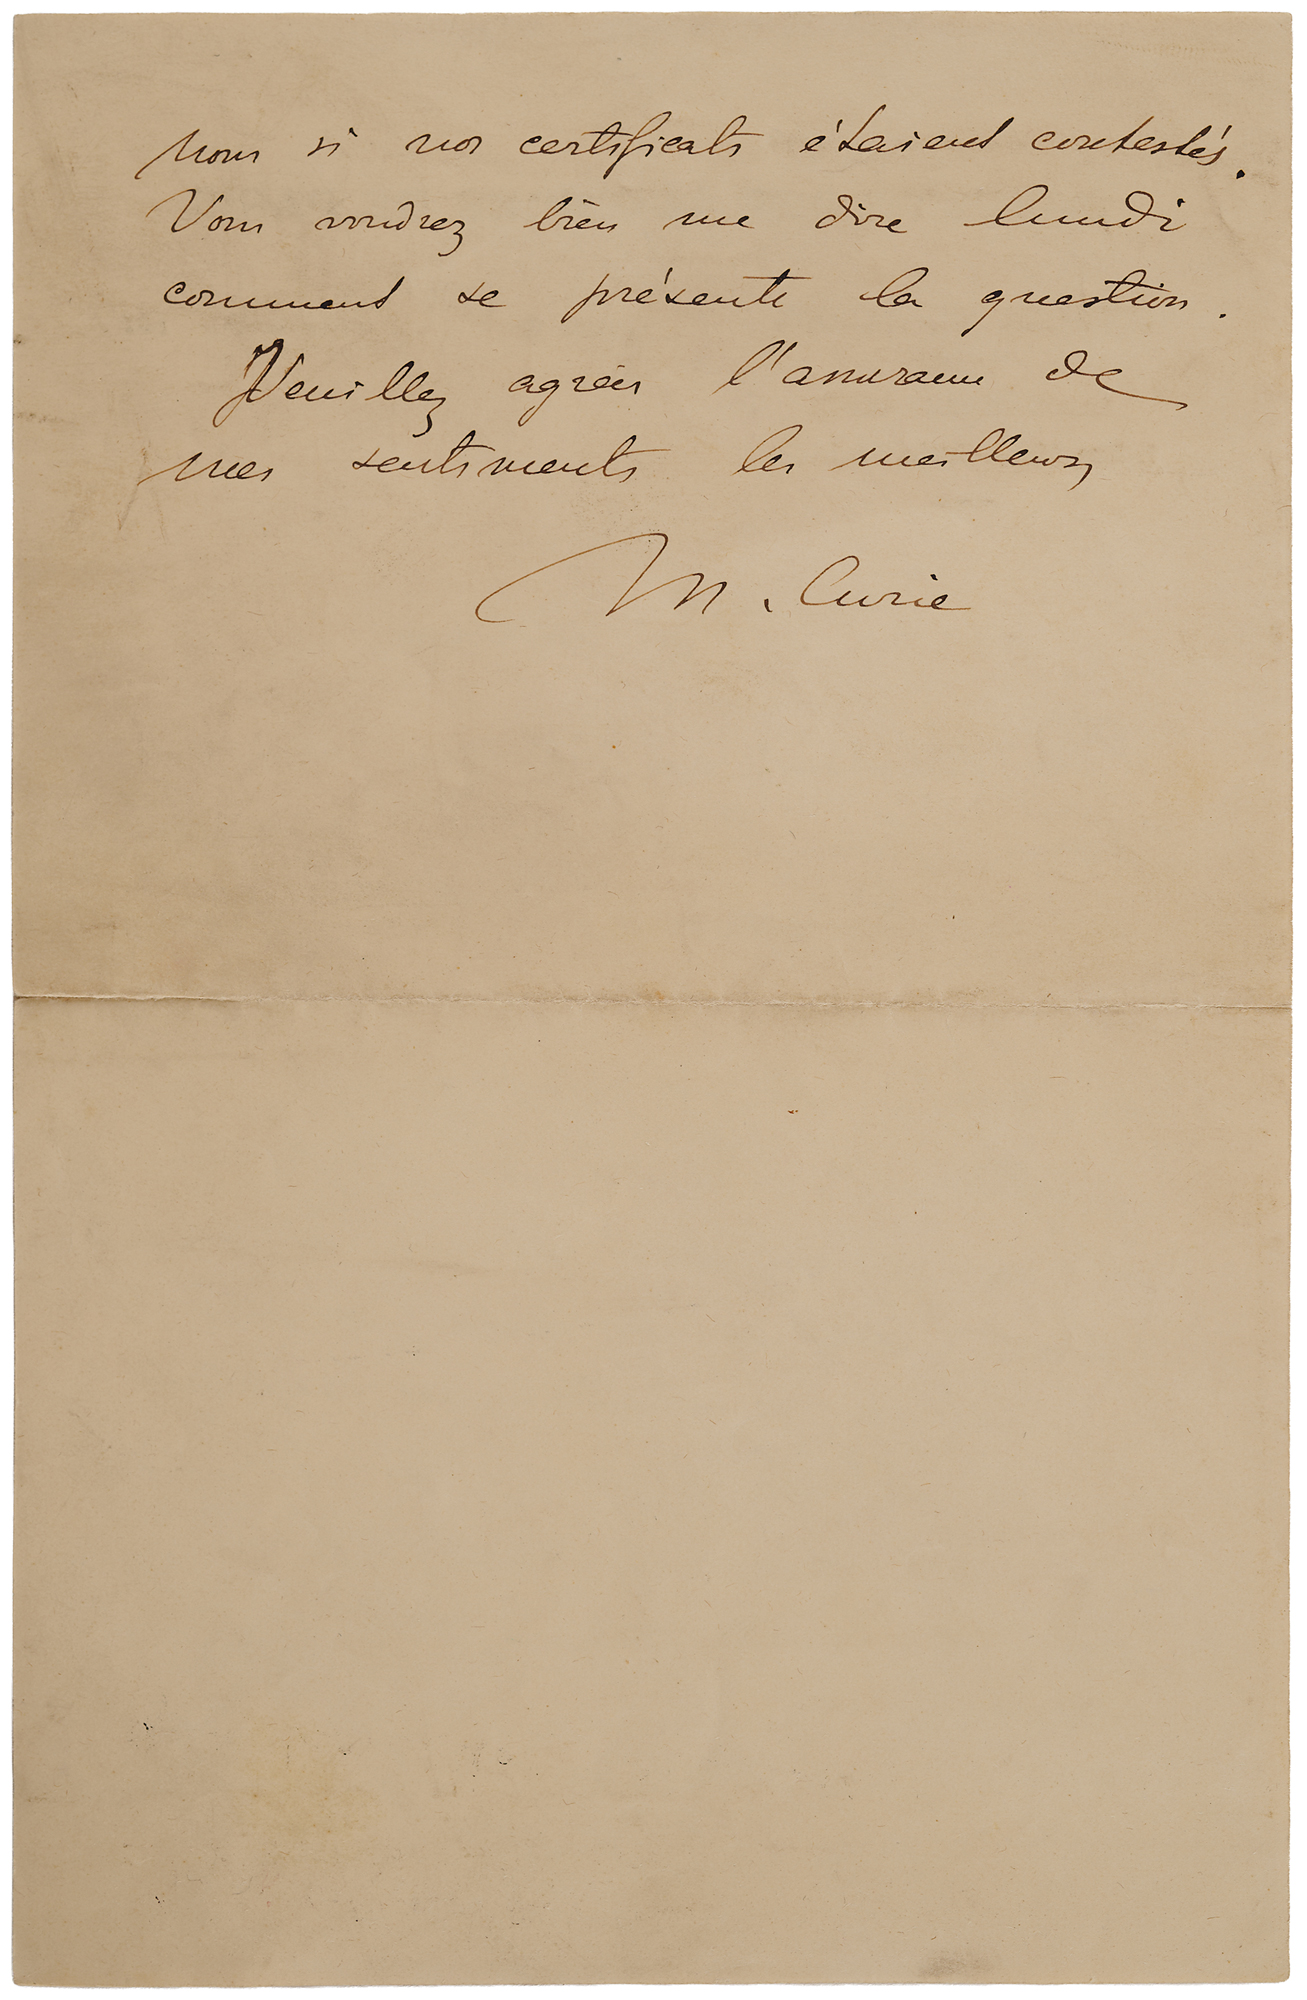 nous si nos certificats étaient contestés.
Vous voudrez bien me dire lundi
comment se présente la question.
Veuillez agréer l'assurance de
mes sentiments les meilleurs
M. Curie